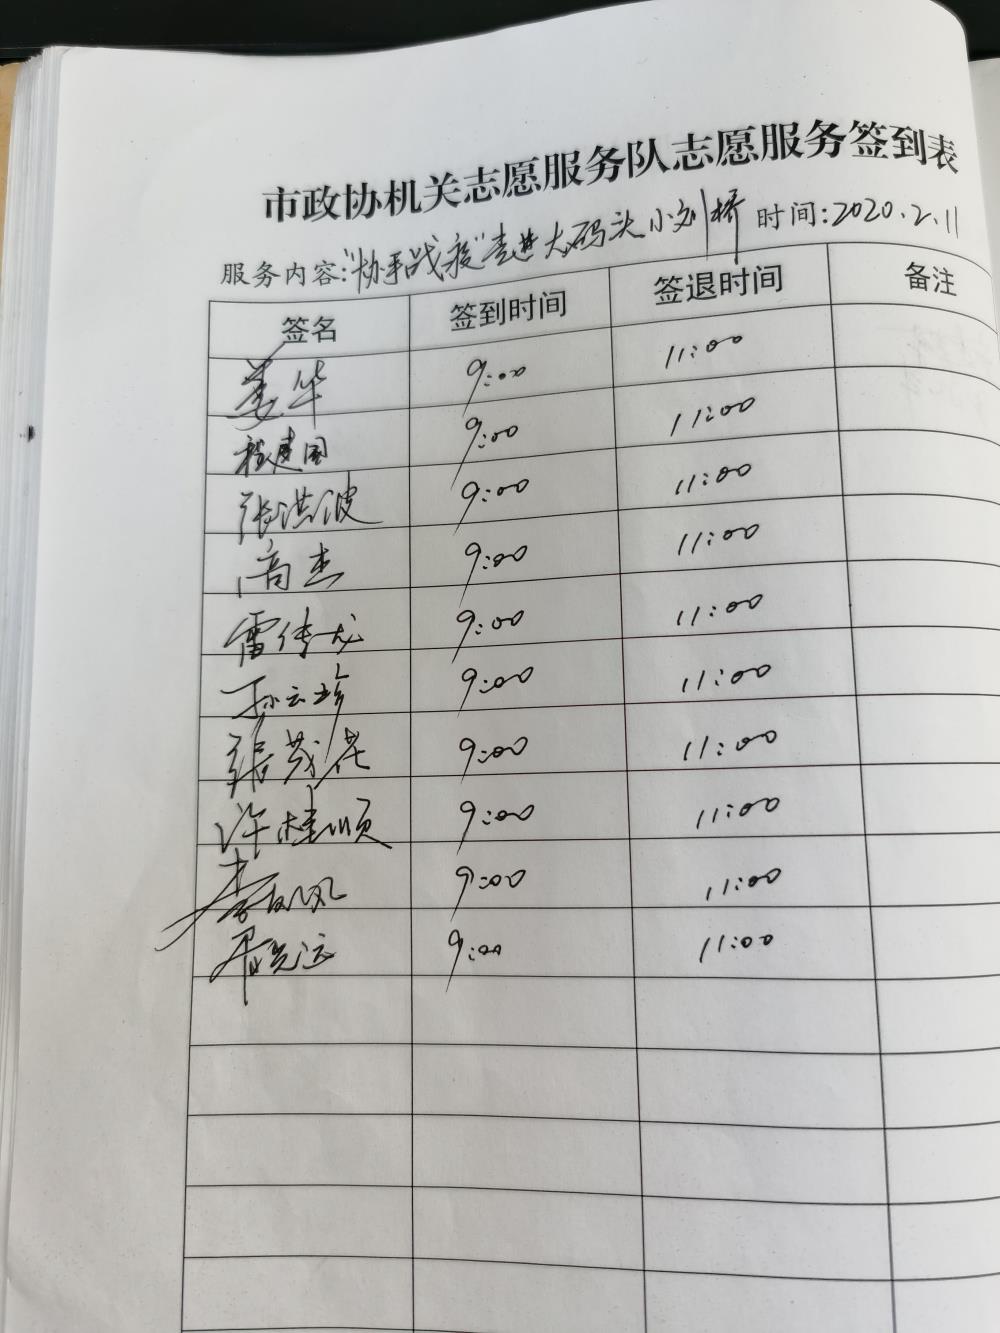 市政协机关志愿服务队志愿服务签到表
服务内容:"协手战疫"走进大码头小刘桥 时间:2020.2.11
签名 签到时间 签退时间 备注
姜华 9:00 11:00
程建国 9:00 11:00
张洪波 9:00 11:00
高杰 9:00 11:00
雷传龙 9:00 11:00
孙云珍 9:00 11:00
张茂花 9:00 11:00
许桂顺 9:00 11:00
9:00 11:00
9:00 11:00